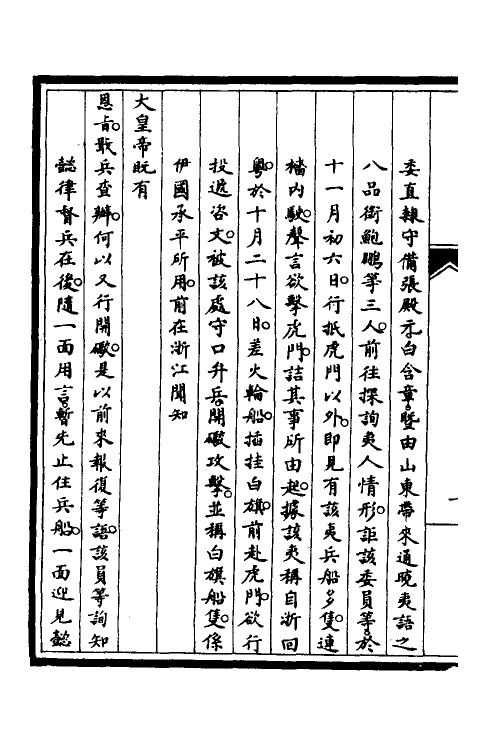 委直隸守備張殿元白含章暨由山東帶來通曉夷語之
八品銜鮑鵬等三人前往探詢夷人情形詎該委員等於
十一月初六日行抵虎門以外即見有該夷兵船多隻連
檣內駛聲言欲擊虎門詰其事所由起據該夷稱自浙回
粵於十月二十八日差火輪船插挂白旗前赴虎門欲行
投遞咨文被該處守口弁兵開礮攻擊並稱白旗船隻係
伊國承平所用前在浙江聞知
大皇帝既有
恩旨戢兵查辦何以又行開礮是以前來報復等語該員等詢知
懿律督兵在後隨一面用言暫先止住兵船一面迎見懿